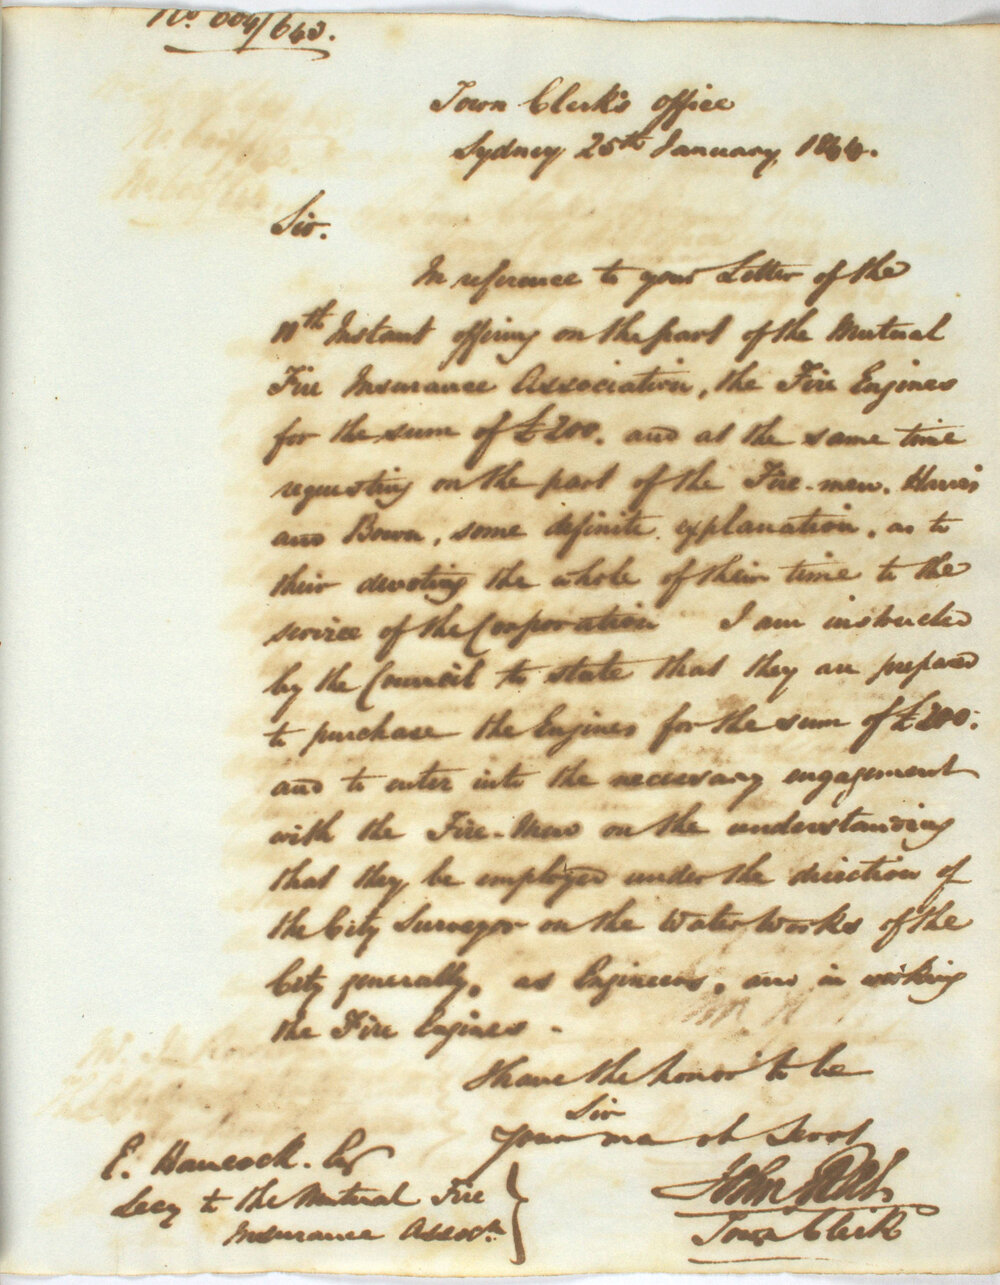 No. 004/640.
Town Clerk's office
Sydney 25th January 1844.
Sir.
In reference to your Letter of the
11th Instant offering on the part of the Mutual
Fire Insurance Association, the Fire Engines
for the sum of £200. and at the same time
requesting on the part of the Fire-men. Howis
and Bown, some definite explanation, as to
their devoting the whole of their time to the
service of the Corporation I am instructed
by the Council to state that they are prepared
to purchase the Engines for the sum of £200:
and to enter into the necessary engagement
with the Fire-Men on the understanding
that they be employed under the direction of
the City Surveyor on the Water Works of the
City generally, as Engineers, and in working
the Fire Engines -
I have the honor to be
Sir
Your mo ob Servt
John
Town Clerk
E. Hancock. Esq
Secy to the Mutual Fire
Insurance Assocn.